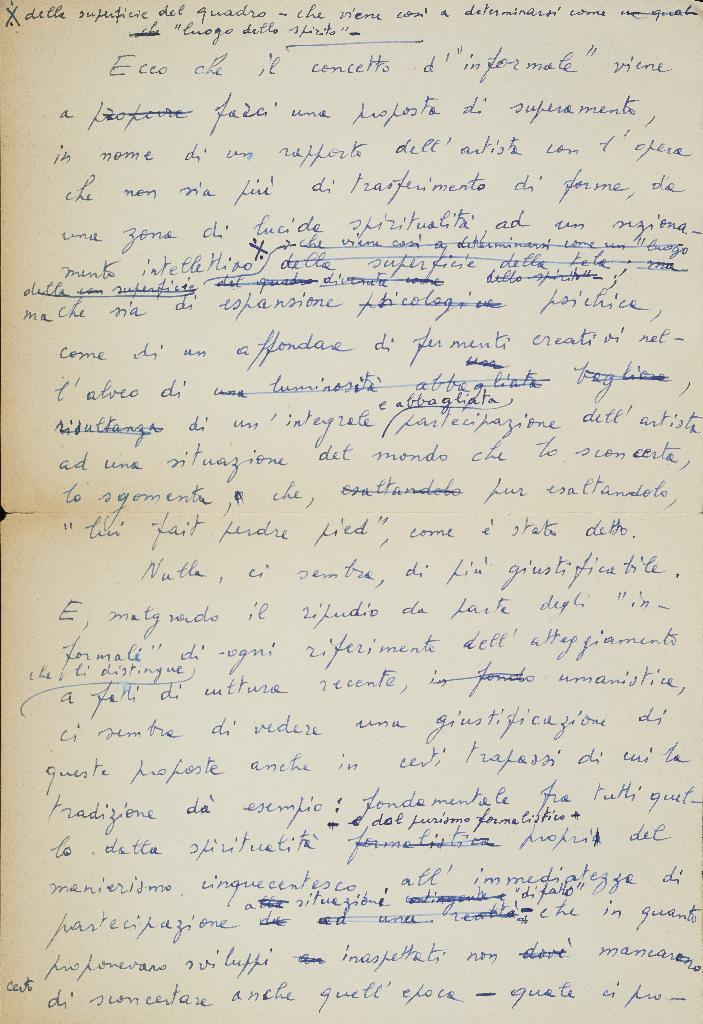 X della superficie del quadro – che viene così a determinarsi come un quale
che "luogo dello spirito" –
Ecco che il concetto d'"informale" viene
a proporre farci una proposta di superamento,
in nome di un rapporto dell'artista con l'opera
che non sia più di trasferimento di forme, da
una zona di lucida spiritualità ad un seziona-
X – che viene così a determinarsi come un "luogo
mento intellettivo della superficie della tela; ma
della con superficie del quadro divenuta come dello spirito" – ;
ma che sia di espansione psicologica psichica,
come di un affondare di fermenti creativi nel-
l'alveo di una luminosità abbagliata bagliore,
e abbagliata
risultanza di un'integrale partecipazione dell'artista
ad una situazione del mondo che lo sconcerta,
lo sgomenta, che, esaltandolo pur esaltandolo,
"lui fait perdre pied", come è stato detto.
Nulla, ci sembra, di più giustificabile.
E, malgrado il ripudio da parte degli "in-
formali" di ogni riferimento dell'atteggiamento
che li distingue,
a fatti di cultura recente, in fondo umanistica,
ci sembra di vedere una giustificazione di
queste proposte anche in certi trapassi di cui la
tradizione dà esempio: fondamentale fra tutti quel-
– e dal purismo formalistico +
lo dalla spiritualità formalistica propri del
manierismo cinquecentesco all'immediatezza di
alla situazioni contingente e "di fatto"
partecipazione da ad una realtà – che in quanto
proponevano sviluppi inaspettati non dovè mancarono
certo
di sconcertare anche quell'epoca – quale ci pro-